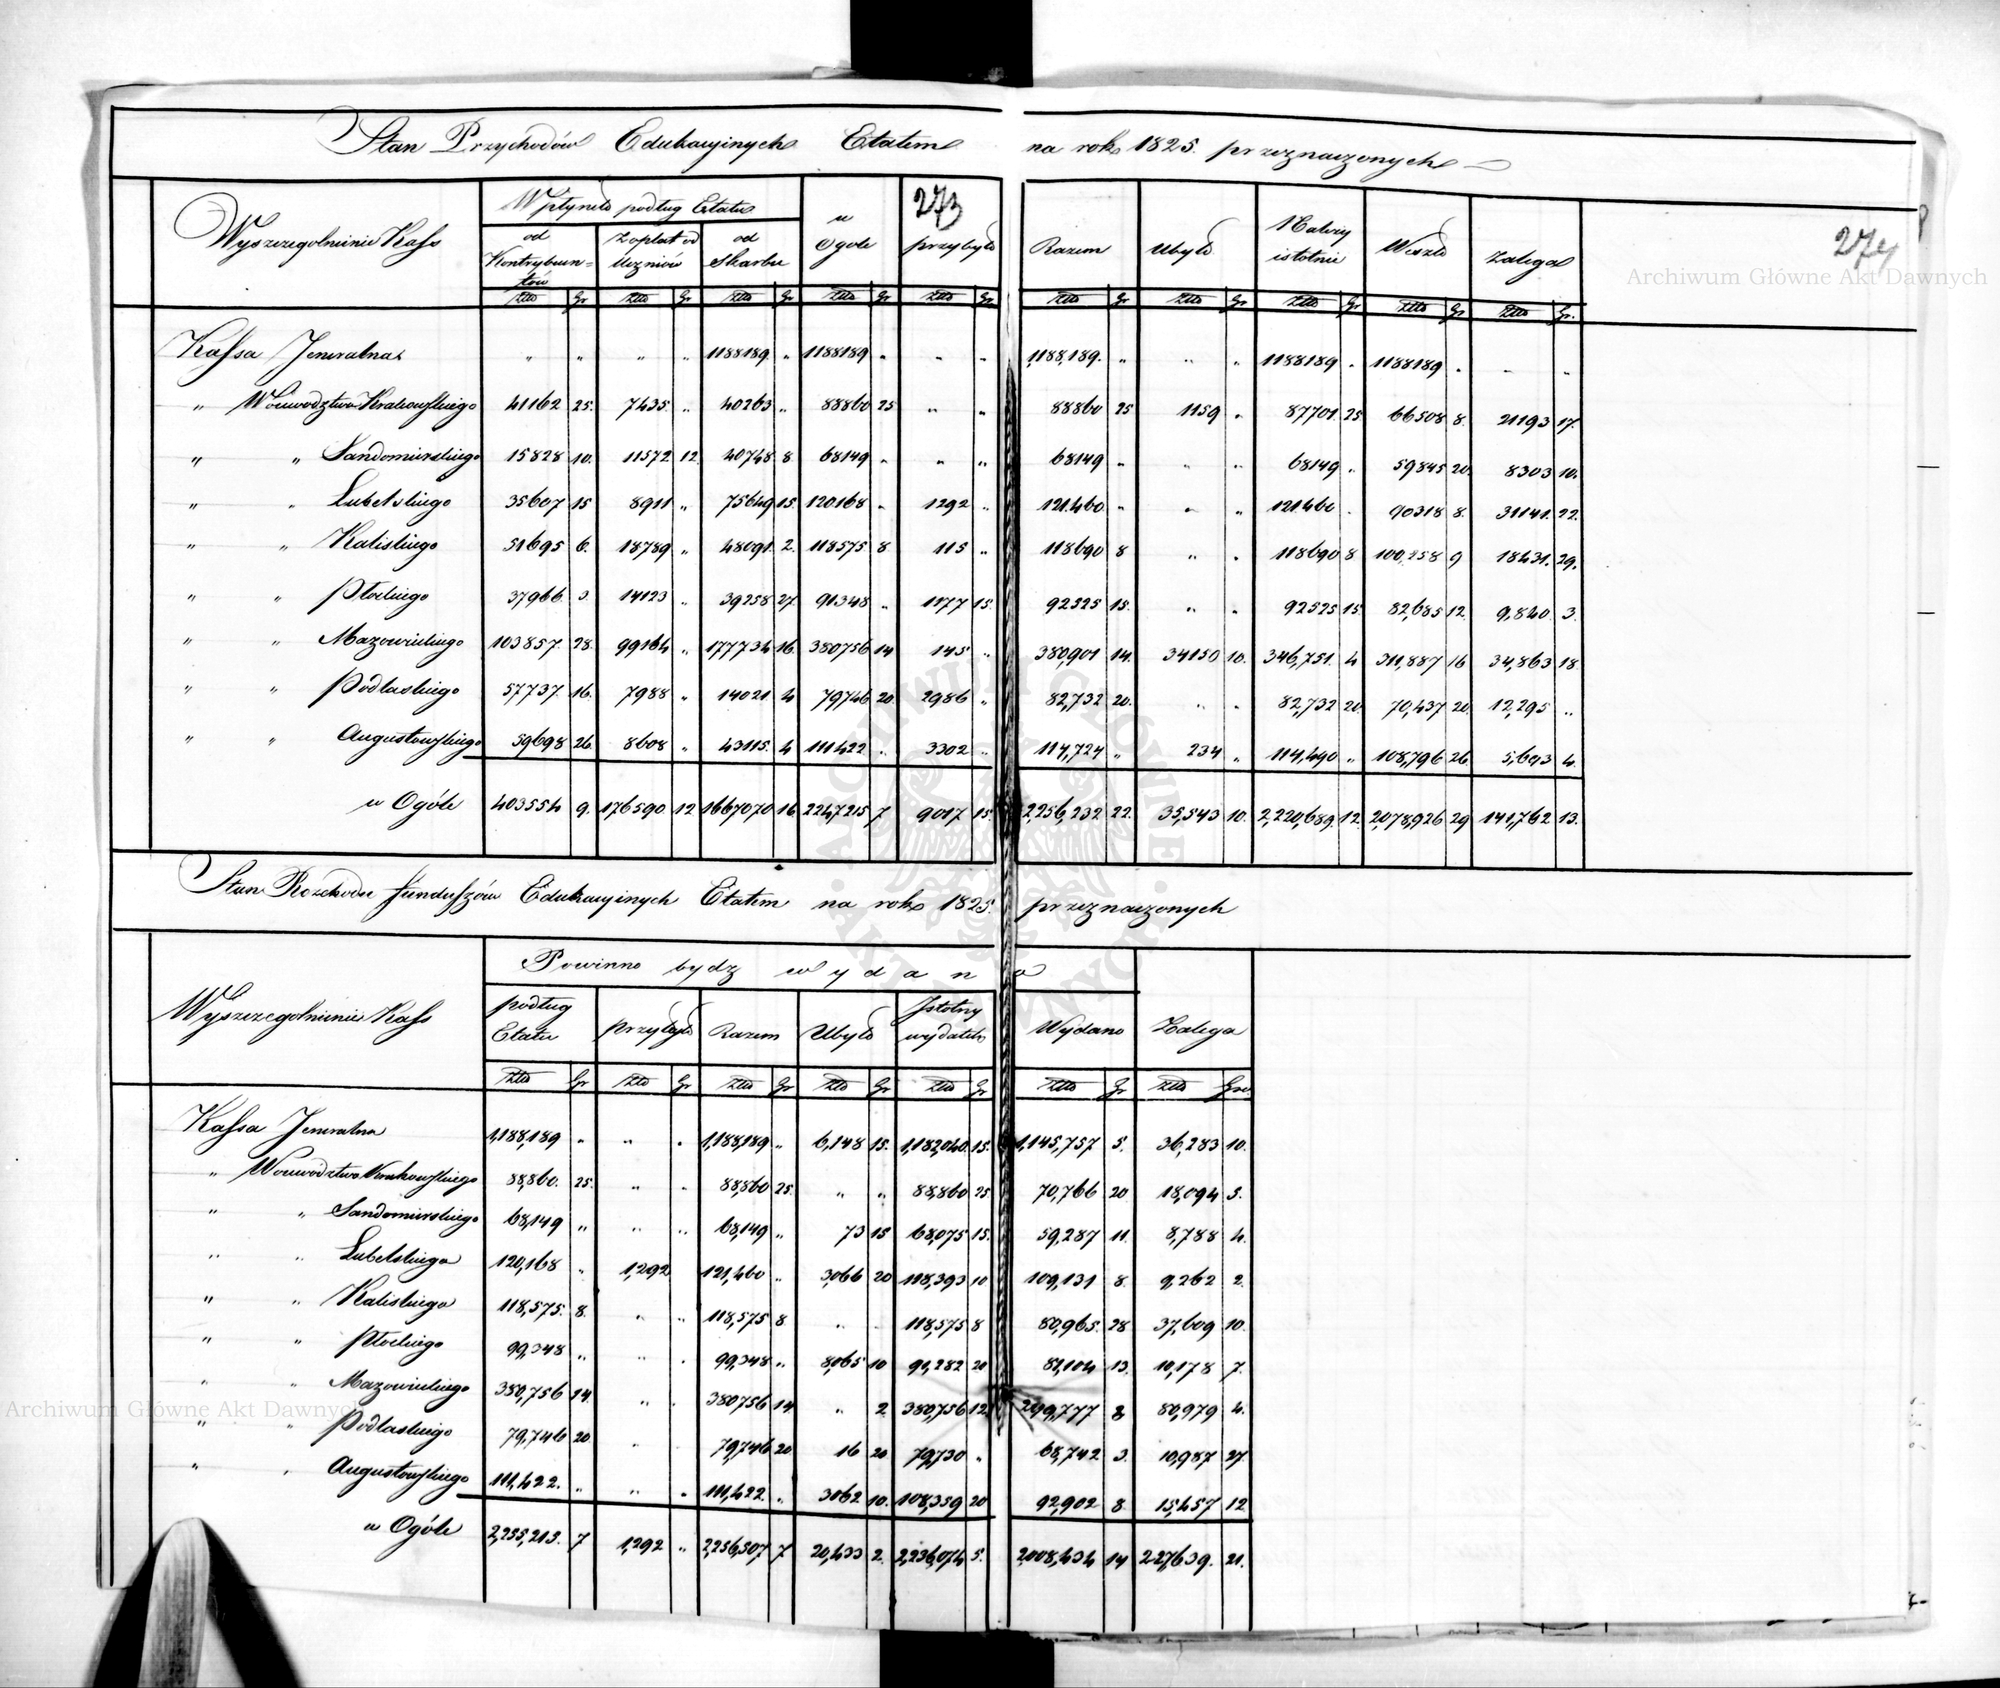 Stan Przychodów Edukacyinych Etatem na rok 1825. przeznaczonych
273
274
Wyszczegolnienie Kass | Wpłynęło podług Etatu | w Ogole | przybyło | Razem | Ubyło | Należy istotnie | Weszło | Zalega
od Kontrybuentów | Z opłat od Uczniów | od Skarbu
Złto | Gr | Złto | Gr | Złto | Gr | Złto | Gr | Złto | Gr | Złto | Gr | Złto | Gr | Złto | Gr | Złto | Gr | Złto | Gr.
Kassa Jeneralna | " | " | " | " | 1188189. | " | 1188189 | " | " | " | 1,188,189. | " | " | " | 1188189 | " | 1188189 | " | " | "
" Woiewodztwa Krakowskiego | 41162 | 25. | 7435. | " | 40263 | " | 88860 | 25 | " | " | 88860 | 25 | 1159 | " | 87701. | 25 | 66508 | 8. | 21193 | 17.
" " Sandomirskiego | 15828 | 10. | 11572 | 12. | 40748 | 8. | 68149 | " | " | " | 68149 | " | " | " | 68149 | " | 59845 | 20. | 8303 | 10.
" " Lubelskiego | 35607 | 15 | 8911 | " | 75649 | 15. | 120168 | " | 1292 | " | 121.460 | " | " | " | 121460 | " | 90318 | 8. | 31141. | 22.
" " Kaliskiego | 51695 | 6. | 18789 | " | 48091. | 2. | 118575 | 8 | 115 | " | 118690 | 8 | " | " | 118690 | 8 | 100,258 | 9 | 18431. | 29.
" " Płockiego | 37966 | 3 | 14123 | " | 39258 | 27. | 91348 | " | 1177 | 15. | 92525 | 15. | " | " | 92525 | 15. | 82,685 | 12. | 9,840 | 3.
" " Mazowieckiego | 103857. | 28. | 99164 | " | 177734 | 16. | 380756 | 14 | 145 | " | 380,901 | 14. | 34150 | 10. | 346,751. | 4 | 311,887 | 16 | 34,863 | 18
" " Podlaskiego | 57737. | 16. | 7988 | " | 14021 | 4 | 79746 | 20. | 2986 | " | 82,732 | 20. | " | " | 82,732 | 20. | 70,437 | 20. | 12,295 | "
" " Augustowskiego | 59698 | 26. | 8608 | " | 43115. | 4 | 111422 | " | 3302 | " | 114,724 | " | 234 | " | 114,490 | " | 108,796 | 26 | 5,693 | 4.
w Ogóle | 403554 | 9. | 176590 | 12 | 1667070 | 16. | 2247215 | 7 | 9017 | 15. | 2,256,232 | 22. | 35,543 | 10. | 2,220,689. | 12. | 2,078,926 | 29 | 141,762 | 13.
Stan Rozchodu funduszów Edukacyinych Etatem na rok 1825. przeznaczonych
Wyszczegolnienie Kass | Powinno bydz wydano
podług Etatu | przybyło | Razem | Ubyło | Istotny wydatek | Wydano | Zalega
Złto | Gr | Złto | Gr | Złto | Gr | Złto | Gr | Złto | Gr | Złto | Gr | Złto | Gro.
Kassa Jeneralna | 1,188,189 | " | " | " | 1,188,189 | " | 6,148 | 15. | 1,182,040. | 15. | 1,145,757 | 5. | 36,283 | 10.
" Woiewodztwa Krakowskiego | 88,860. | 25. | " | " | 88,860 | 25. | " | " | 88,860 | 25 | 70,766 | 20 | 18,094 | 5.
" " Sandomirskiego | 68,149 | " | " | " | 68,149 | " | 73 | 15 | 68,075 | 15. | 59,287 | 11. | 8,788 | 4.
" " Lubelskiego | 120,168 | " | 1,292 | 121,460 | " | 3,066 | 20 | 118,393 | 10 | 109,131 | 8. | 9,262 | 2.
" " Kaliskiego | 118,575. | 8. | " | " | 118,575 | 8 | " | " | 118,575 | 8 | 80,965. | 28 | 37,609 | 10.
" " Płockiego | 99,348 | " | " | " | 99,348 | " | 8,065 | 10 | 91,282 | 20 | 81,104 | 13. | 10,178 | 7.
" " Mazowieckiego | 380,756 | 14. | " | " | 380756 | 14 | " | 2 | 380,756 | 12. | 299,777 | 8 | 80,979 | 4.
" " Podlaskiego | 79,746 | 20. | " | " | 79,746 | 20 | 16 | 20 | 79,730 | " | 68,742 | 3. | 10,987 | 27.
" " Augustowskiego | 111,422. | " | " | " | 111,422. | " | 3062 | 10. | 108,359 | 20 | 92,902 | 8. | 15,457 | 12
w Ogóle | 2,255,215. | 7 | 1,292 | " | 2,256,507 | 7 | 20,433 | 2. | 2,236,074 | 5. | 2,008,434 | 14 | 227,639. | 21.
Archiwum Główne Akt Dawnych
Archiwum Główne Akt Dawnych
ARCHIWUM GŁÓWNE AKT DAWNYCH